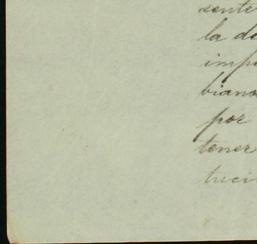 sente
la de
impo
biano
por
tener
treci